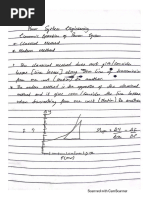 Power System Engineering
Economic Operation of Power System
* Classical Method
* Modern Method
* The classical method does not give / consider
losses (line losses) along the line of transmission
from one unit (Station) to another.
* The modern method is the opposite of the classical
method and it gives room / consider the line losses
when transmitting from one unit (Station) to another
Slope = ΔY = ΔF
Δx ΔP
P (MW)
Scanned with CamScanner